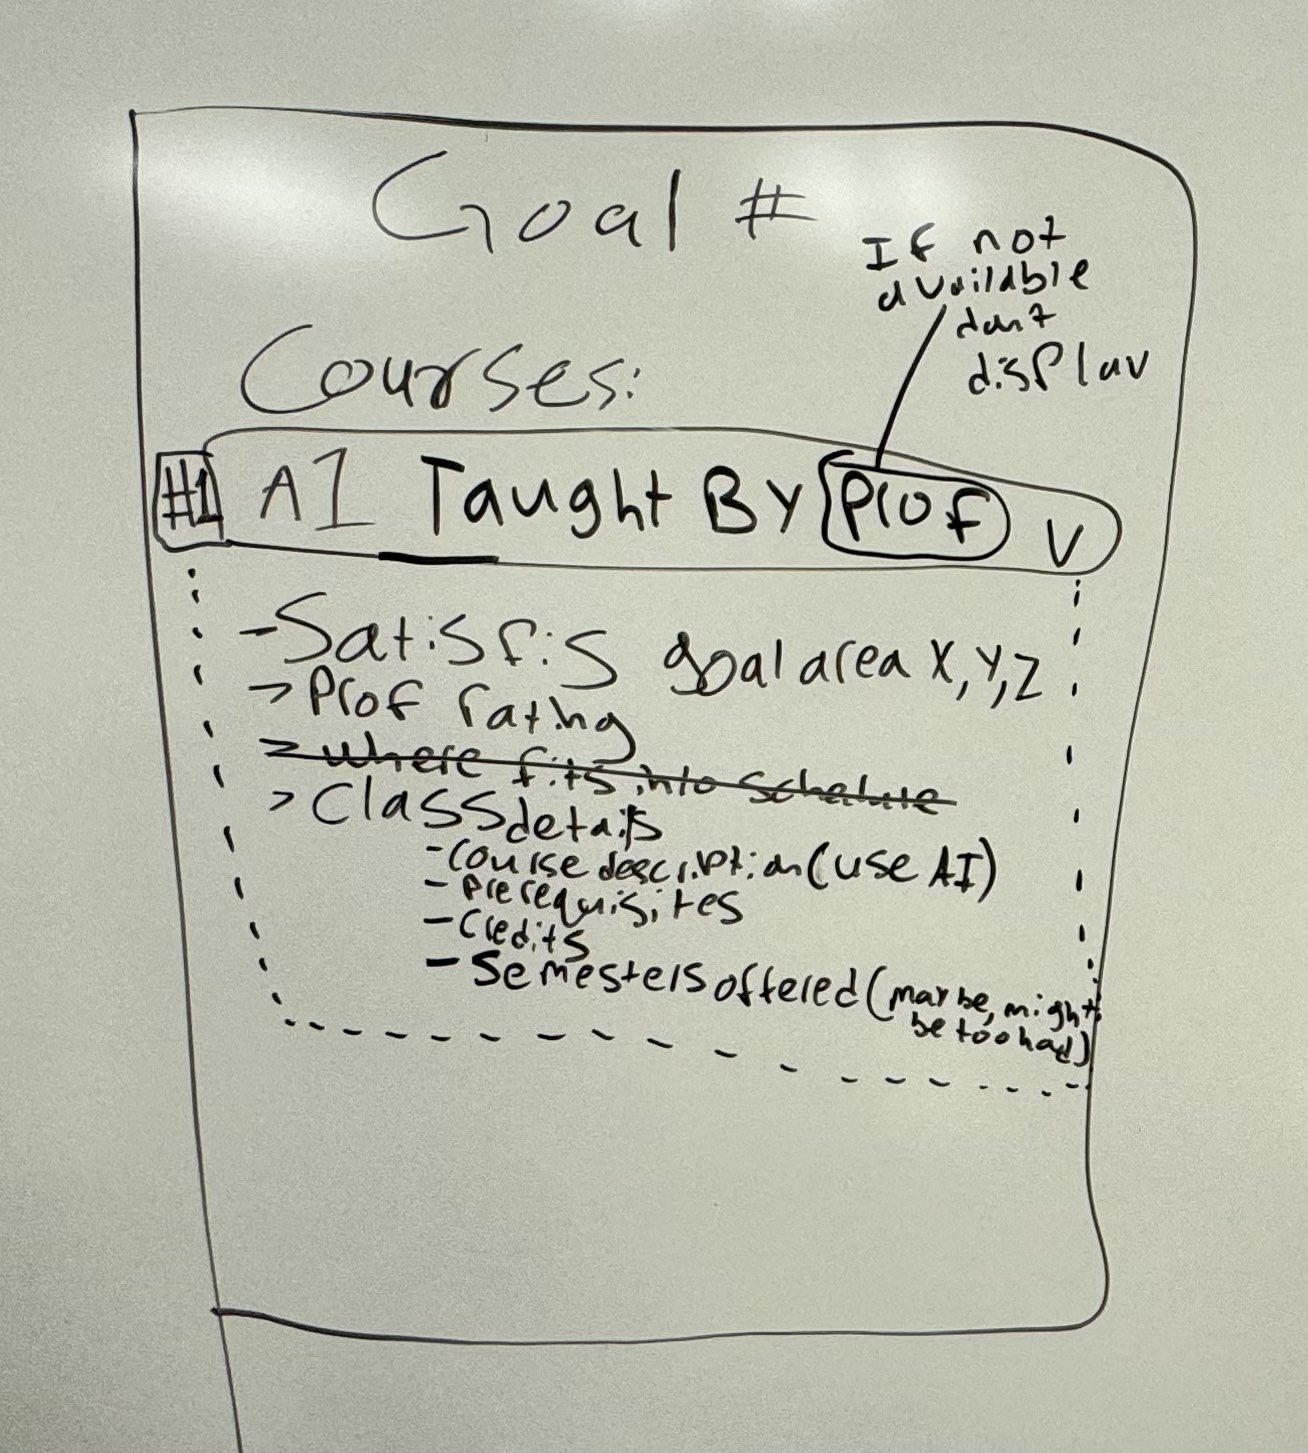 Goal #
If not
available
don't
display
Courses:
#1 AI Taught By Prof V
- Satisfis goal area X, Y, Z
> Prof rating
> where fits into schedule
> Class details
- course description (use AI)
- Prerequisites
- Credits
- Semesters offered (maybe, might
be too hard)